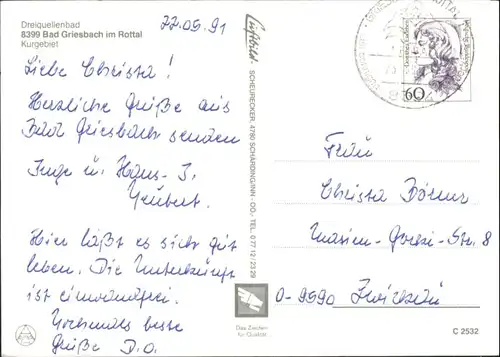 Dreiquellenbad
8399 Bad Griesbach im Rottal
Kurgebiet
22.05.91
Liebe Christa!
Herzliche Grüße aus
Bad Griesbach senden
Inge u. Hans-J.
Neubert
Hier läßt es sich gut
leben. Die Unterkunft
ist einwandfrei.
Nochmals beste
Grüße D.O.
Luftbild
SCHEURECKER, 4780 SCHÄRDING/INN - OÖ - TEL. 0 77 12 / 23 29
Das Zeichen
für Qualität
60
Frau
Christa Börner
Marien-Str. 8
O-9590 Zwickau
C 2532